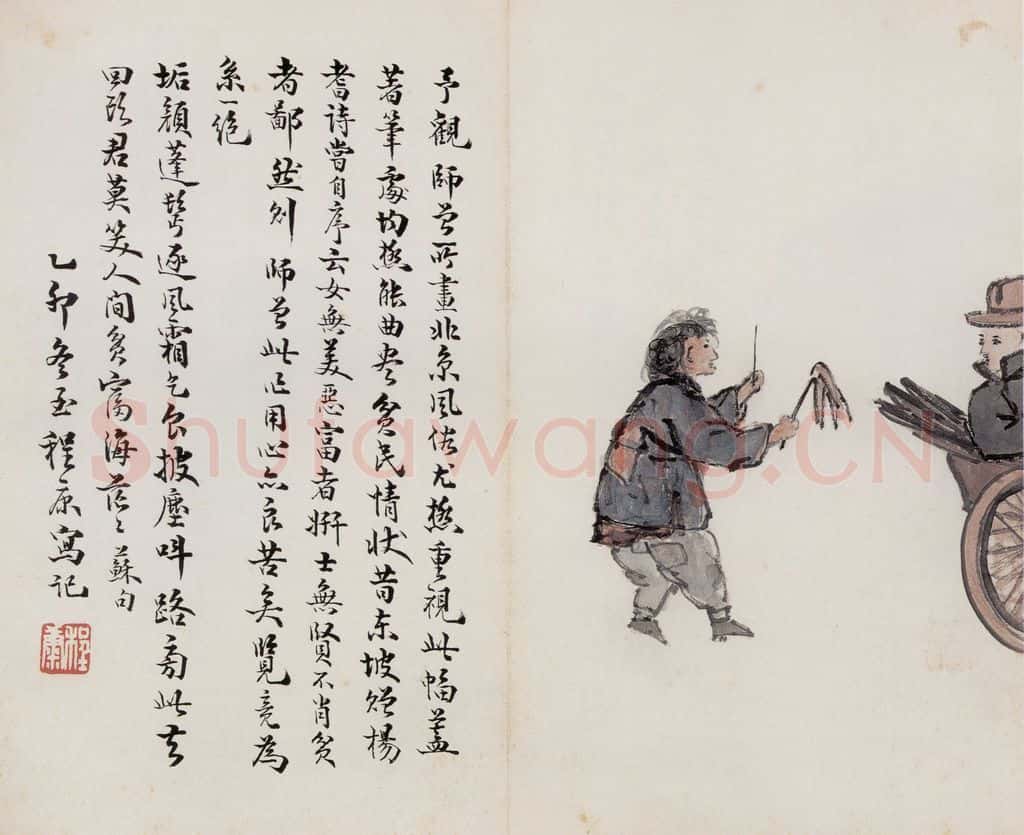 予觀師曾所畫北京風俗尤極重視此幅蓋
著筆處均極能曲盡貧民情狀昔東坡贈楊
耆詩嘗自序云女無美惡富者妍士無賢不肖貧
者鄙然則師曾此作用心亦良苦矣覽竟為
系一絕
垢顏蓬鬢逐風霜乞食披塵叫路旁此去
回頭君莫笑人間貧富海茫〻蘇句
乙卯冬至程康寫記
程康
Shufawang.CN